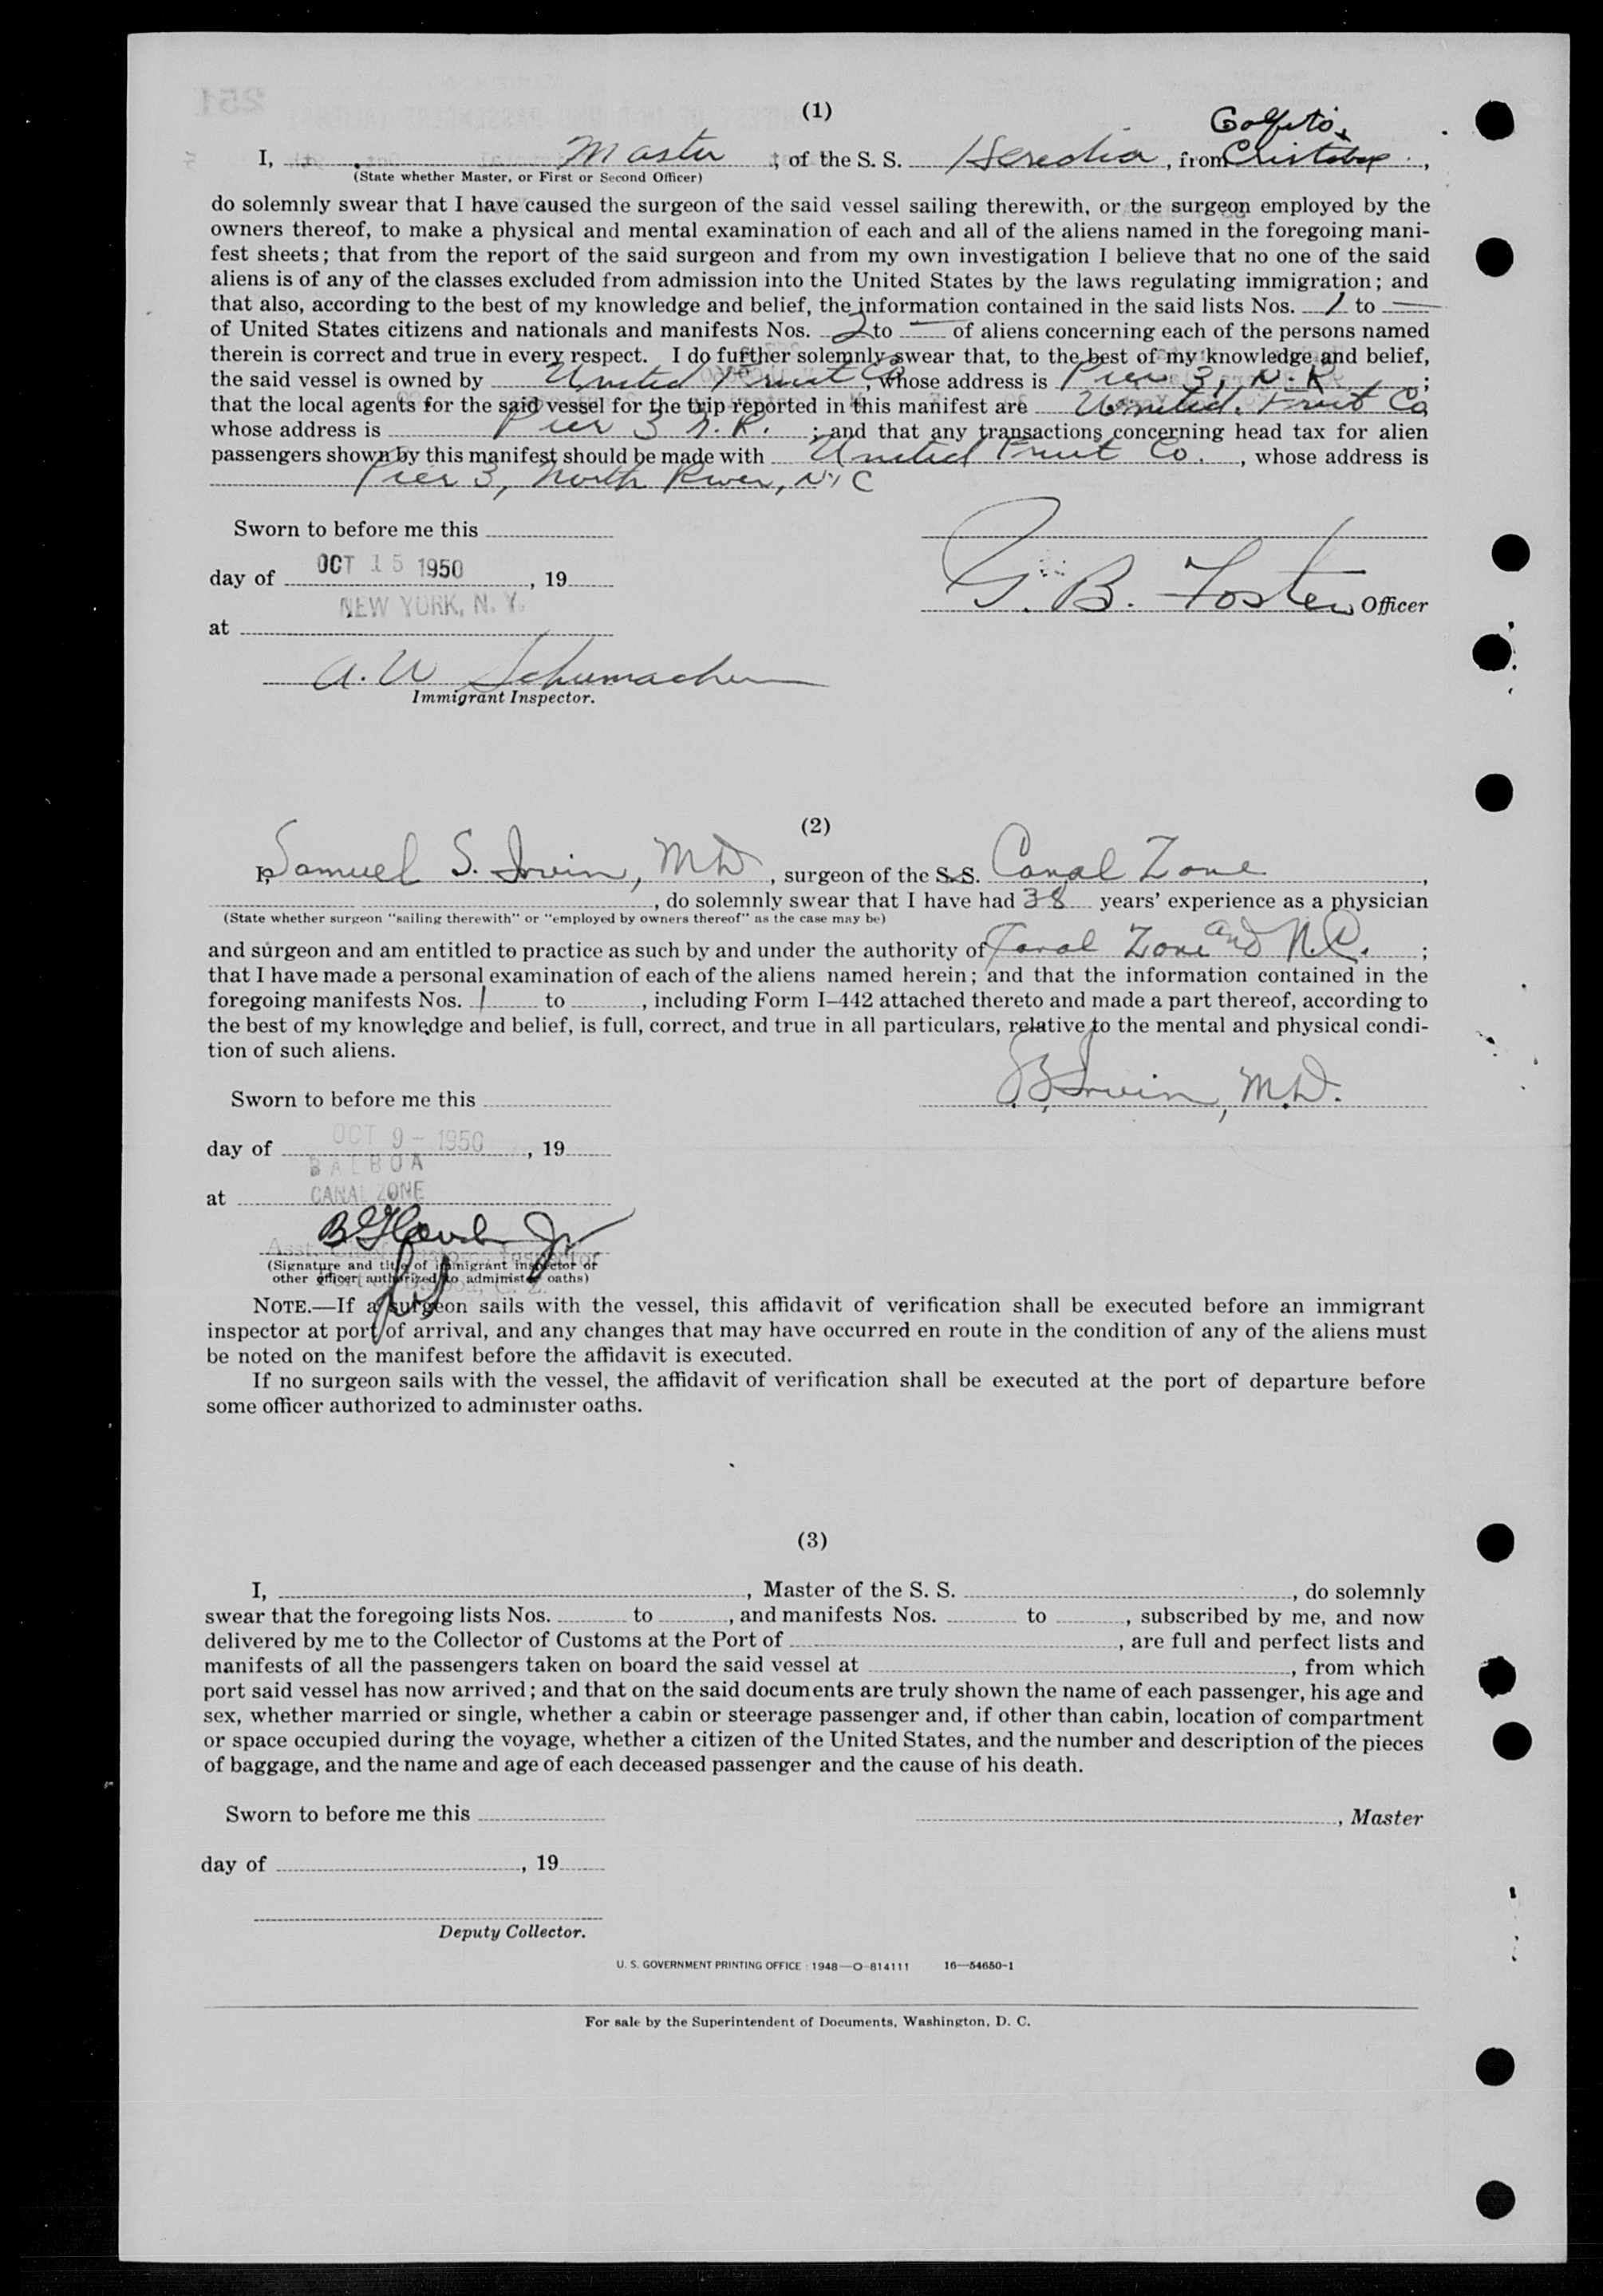 (1)
Golfito,
I, Master, of the S. S. Heredia, from Cristobal,
(State whether Master, or First or Second Officer)
do solemnly swear that I have caused the surgeon of the said vessel sailing therewith, or the surgeon employed by the
owners thereof, to make a physical and mental examination of each and all of the aliens named in the foregoing mani-
fest sheets; that from the report of the said surgeon and from my own investigation I believe that no one of the said
aliens is of any of the classes excluded from admission into the United States by the laws regulating immigration; and
that also, according to the best of my knowledge and belief, the information contained in the said lists Nos. 1 to —
of United States citizens and nationals and manifests Nos. 2 to — of aliens concerning each of the persons named
therein is correct and true in every respect. I do further solemnly swear that, to the best of my knowledge and belief,
the said vessel is owned by United Fruit Co, whose address is Pier 3, N. R.;
that the local agents for the said vessel for the trip reported in this manifest are United Fruit Co
whose address is Pier 3 N. R.; and that any transactions concerning head tax for alien
passengers shown by this manifest should be made with United Fruit Co., whose address is
Pier 3, North River, NYC
Sworn to before me this
day of OCT 15 1950, 19
NEW YORK, N. Y.
G. B. Foster Officer
at
A. W Schumacher
Immigrant Inspector.
(2)
I, Samuel S. Irvin, MD, surgeon of the S.S. Canal Zone,
, do solemnly swear that I have had 38 years' experience as a physician
(State whether surgeon "sailing therewith" or "employed by owners thereof" as the case may be)
and surgeon and am entitled to practice as such by and under the authority of Canal Zone and N.C.;
that I have made a personal examination of each of the aliens named herein; and that the information contained in the
foregoing manifests Nos. 1 to , including Form I-442 attached thereto and made a part thereof, according to
the best of my knowledge and belief, is full, correct, and true in all particulars, relative to the mental and physical condi-
tion of such aliens.
Irvin, M.D.
Sworn to before me this
day of OCT 9 - 1950, 19
BALBOA
at CANAL ZONE
Jr
(Signature and title of immigrant inspector or
other officer authorized to administer oaths)
NOTE.—If a surgeon sails with the vessel, this affidavit of verification shall be executed before an immigrant
inspector at port of arrival, and any changes that may have occurred en route in the condition of any of the aliens must
be noted on the manifest before the affidavit is executed.
If no surgeon sails with the vessel, the affidavit of verification shall be executed at the port of departure before
some officer authorized to administer oaths.
(3)
I, , Master of the S. S. , do solemnly
swear that the foregoing lists Nos. to , and manifests Nos. to , subscribed by me, and now
delivered by me to the Collector of Customs at the Port of , are full and perfect lists and
manifests of all the passengers taken on board the said vessel at , from which
port said vessel has now arrived; and that on the said documents are truly shown the name of each passenger, his age and
sex, whether married or single, whether a cabin or steerage passenger and, if other than cabin, location of compartment
or space occupied during the voyage, whether a citizen of the United States, and the number and description of the pieces
of baggage, and the name and age of each deceased passenger and the cause of his death.
Sworn to before me this
, Master
day of , 19
Deputy Collector.
U. S. GOVERNMENT PRINTING OFFICE : 1948—O-814111 16—54650-1
For sale by the Superintendent of Documents, Washington, D. C.